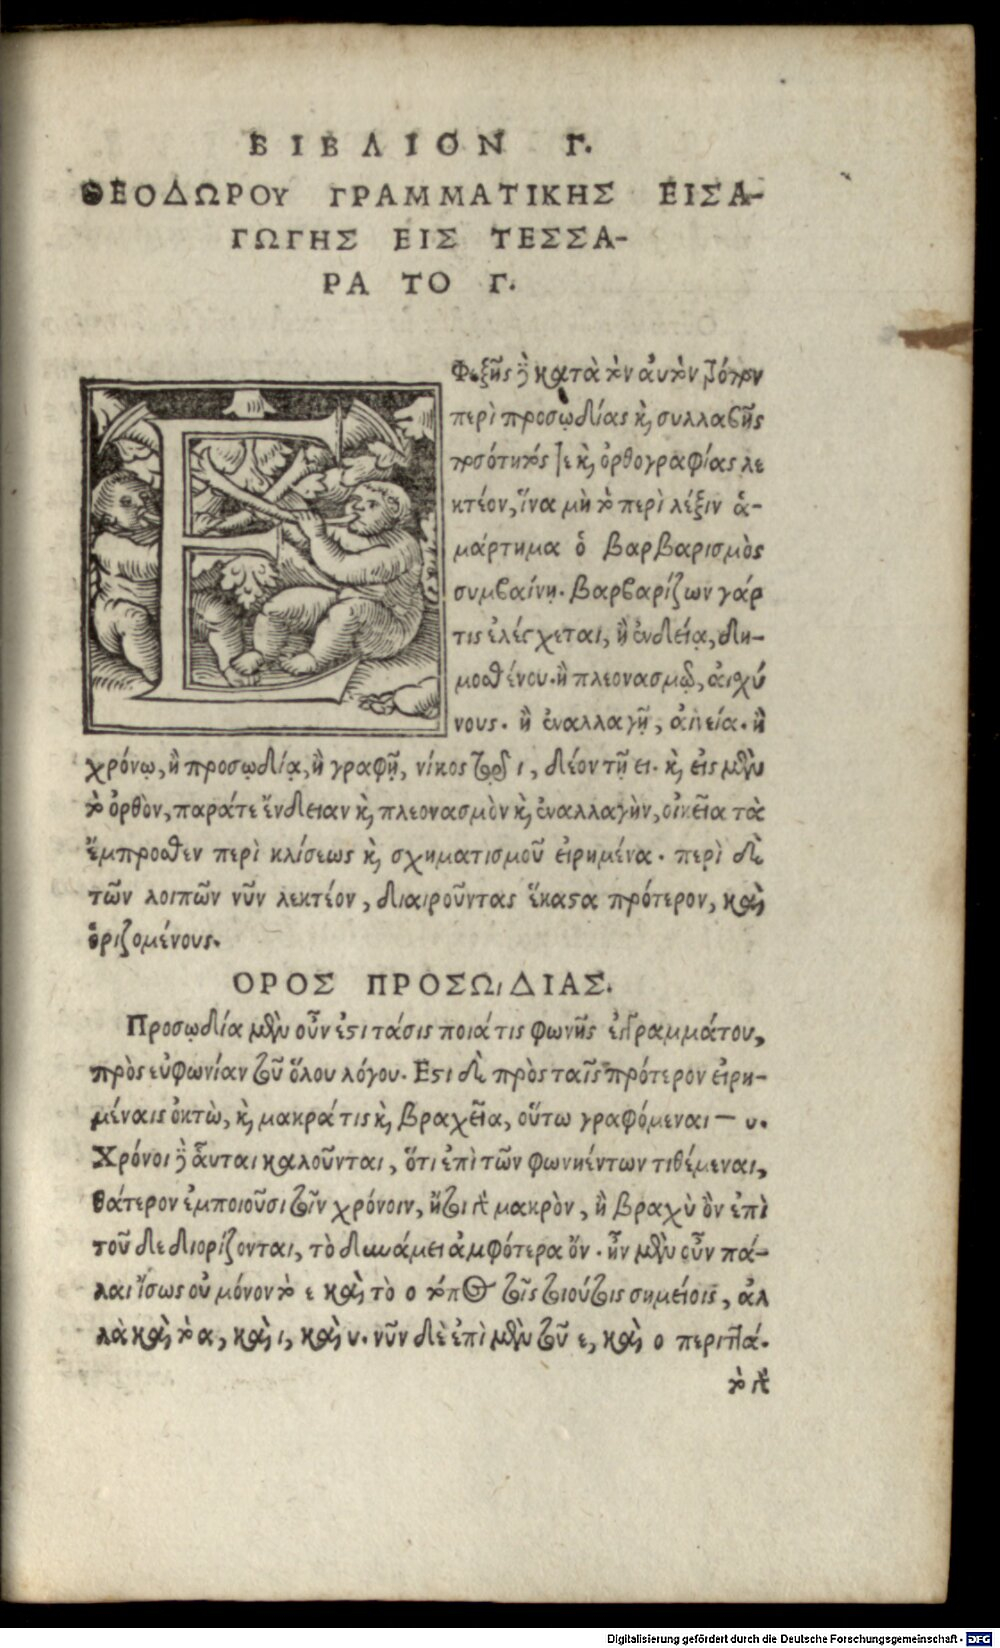 ΒΙΒΛΙΟΝ Γ.
ΘΕΟΔΩΡΟΥ ΓΡΑΜΜΑΤΙΚΗΣ ΕΙΣΑ-
ΓΩΓΗΣ ΕΙΣ ΤΕΣΣΑ-
ΡΑ ΤΟ Γ.
ΕΦεξῆς δὲ κατὰ τὸν ἀυτὸν τρόπον
περὶ προσῳδίας κ, συλλαβῆς
ποσότητός τε κ, ὀρθογραφίας λε
κτέον, ἵνα μὴ τὸ περὶ λέξιν ἁ-
μάρτημα ὁ βαρβαρισμὸς
συμβαίνῃ. βαρβαρίζων γάρ
τις ἐλέγχεται, ἢ ἐνδείᾳ, δη-
μοσθένου. ἢ πλεονασμῷ, αἰσχύ
νους. ἢ ἐναλλαγῇ, ἀπεία. ἢ
χρόνῳ, ἢ προσῳδίᾳ, ἢ γραφῇ, νίκος τῷ ι, δέον τῇ ει. κ, εἰς μὲν
τὸ ὀρθὸν, παράτε ἔνδειαν κ, πλεονασμὸν κ, ἐναλλαγὴν, οἰκεῖα τὰ
ἔμπροσθεν περὶ κλίσεως κ, σχηματισμοῦ εἰρημένα. περὶ δὲ
τῶν λοιπῶν νῦν λεκτέον, διαιροῦντας ἕκαστα πρότερον, καὶ
ὁριζομένους.
ΟΡΟΣ ΠΡΟΣΩΙΔΙΑΣ.
Προσῳδία μὲν οὖν ἐστι τάσις ποιά τις φωνῆς ἐγγραμμάτου,
πρὸς εὐφωνίαν τοῦ ὅλου λόγου. Εστι δὲ πρὸς ταῖς πρότερον εἰρη-
μέναις ὀκτὼ, κ, μακρά τις κ, βραχεῖα, οὕτω γραφόμεναι — υ.
Χρόνοι δὲ ἇυται καλοῦνται, ὅτι ἐπὶ τῶν φωνηέντων τιθέμεναι,
θάτερον ἐμποιοῦσι τοῖν χρόνοιν, ἤτοι τὸν μακρὸν, ἢ βραχὺ ὃν ἐπὶ
τοῦ δε διορίζονται, τὸ δυνάμει ἀμφότερα ὄν. ἦν μὲν οὖν πά-
λαι ἴσως οὐ μόνον τὸ ε καὶ τὸ ο τόπος τοῖς τοιούτοις σημείοις, ἀλ
λὰ καὶ τὸ α, καὶ ι, καὶ υ. νῦν δὲ ἐπὶ μὲν τοῦ ε, καὶ ο περιττά.
τὸ τὲ